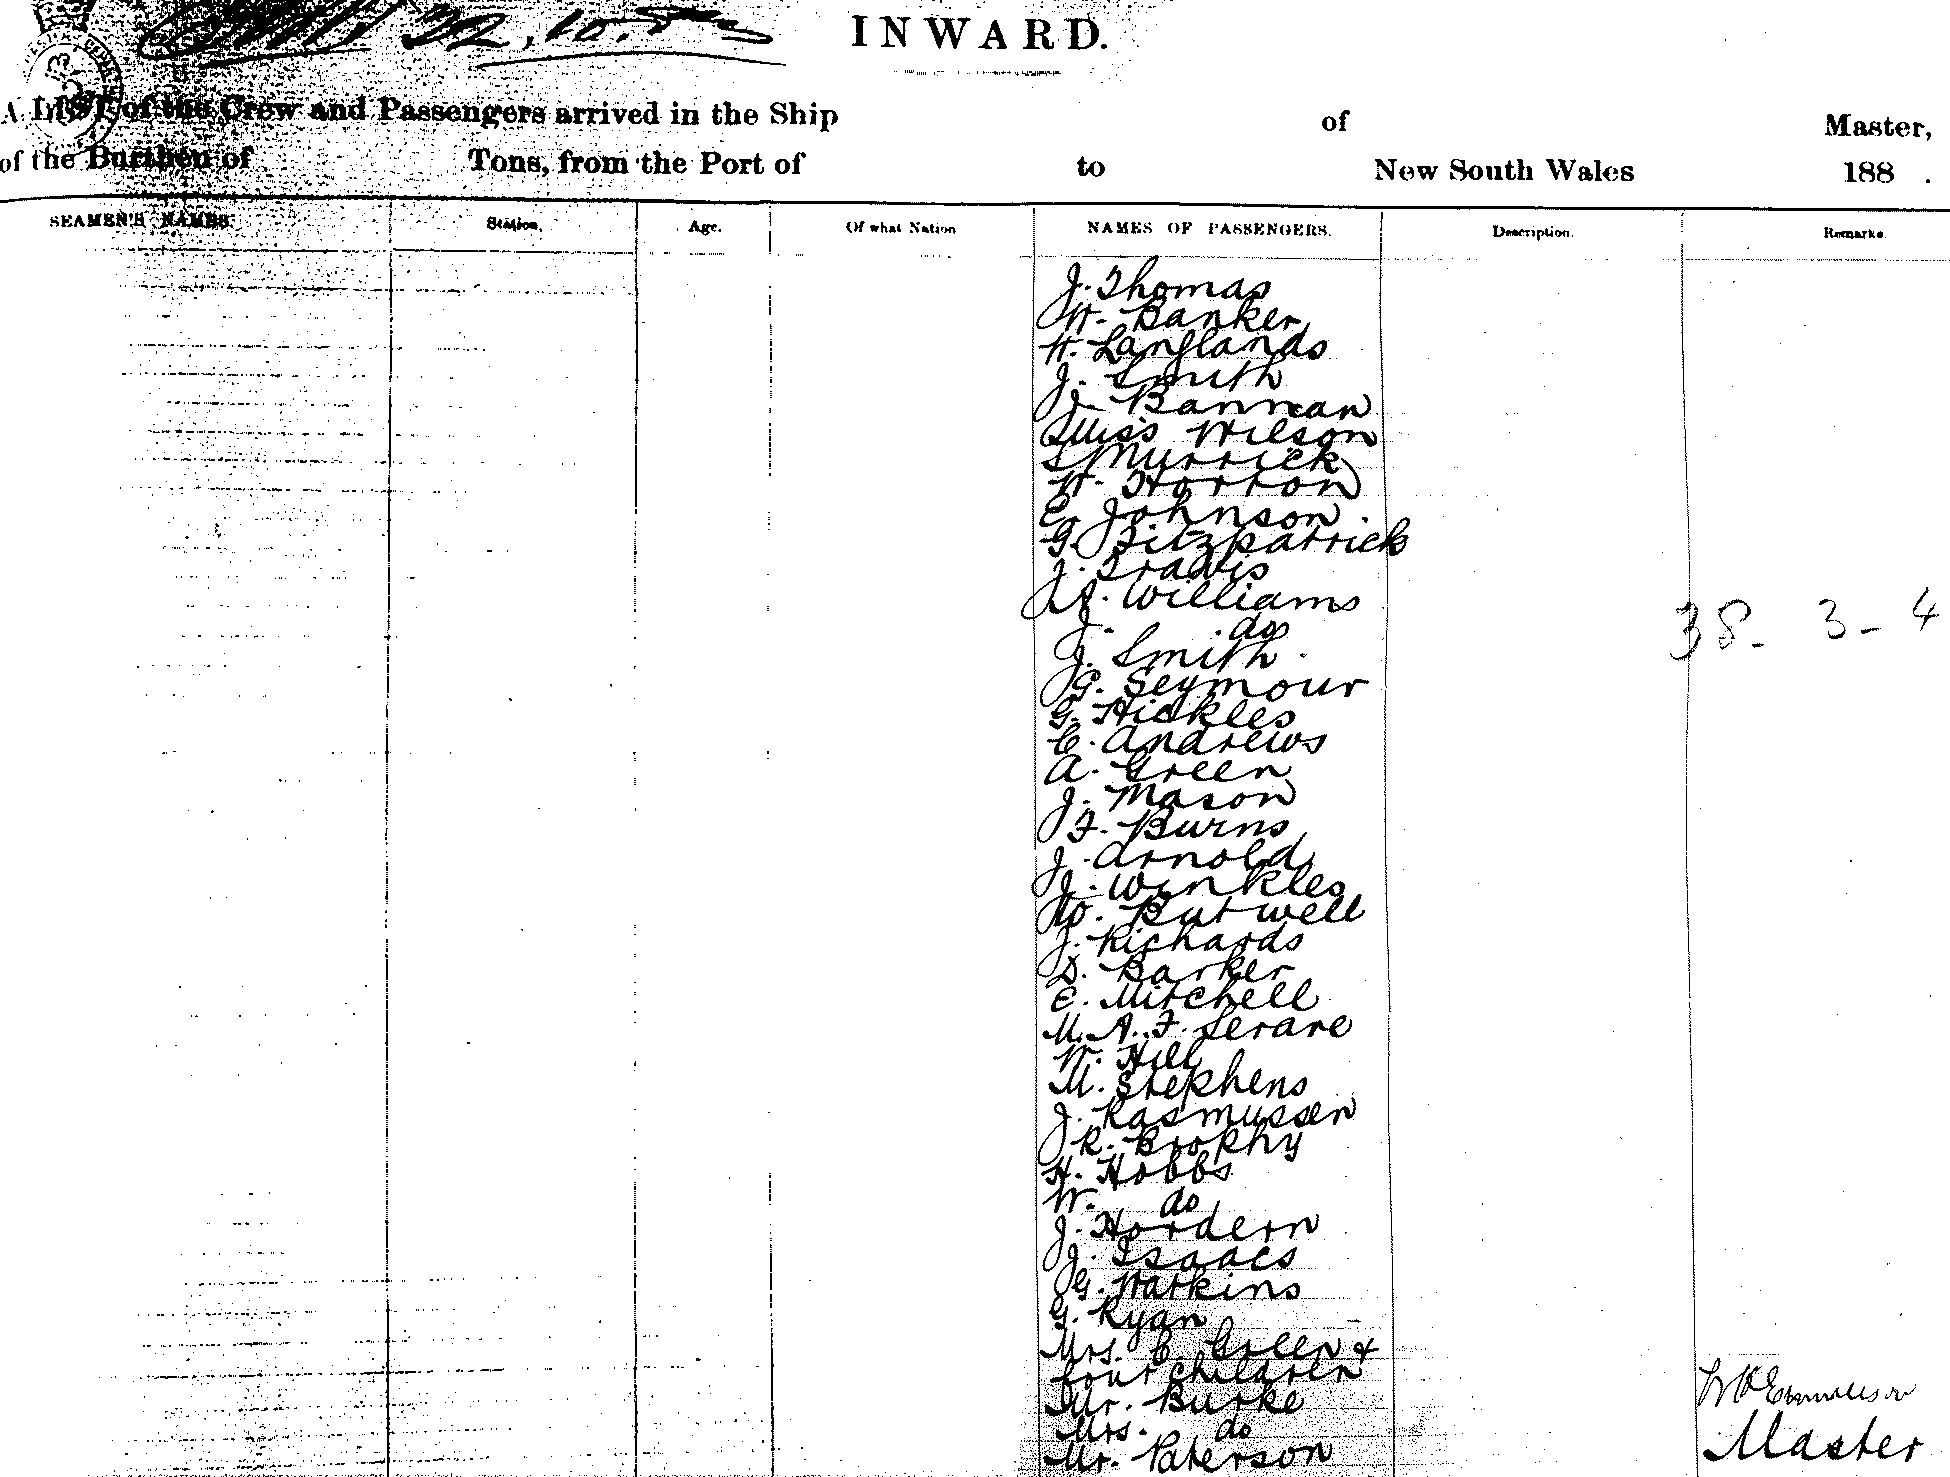 INWARD.
A LIST of the Crew and Passengers arrived in the Ship of Master,
of the Burthen of Tons, from the Port of to New South Wales 188 .
SEAMEN'S NAMES. Station. Age. Of what Nation NAMES OF PASSENGERS. Description. Remarks.
J. Thomas
W. Banker
H. Langlands
J. Smith
J. Bannean
Miss Wilson
Murrick
W. Horton
E. Johnson
G. Fitzpatrick
J. Travis
A. Williams
J. do
38 - 3 - 4
J. Smith
G. Seymour
G. Hickles
C. Andrews
A. Green
J. Mason
F. Burns
J. Arnold
J. Winkles
W. Butwell
J. Richards
D. Barker
E. Mitchell
M. A. F. Serare
W. Hill
M. Stephens
J. Rasmussen
R. Brophy
H. Hobbs
W. do
J. Hordern
J. Isaacs
G. Watkins
G. Ryan
Mrs. C. Green &
four children
Mr. Burke
Mrs. do
Master
Mr. Paterson